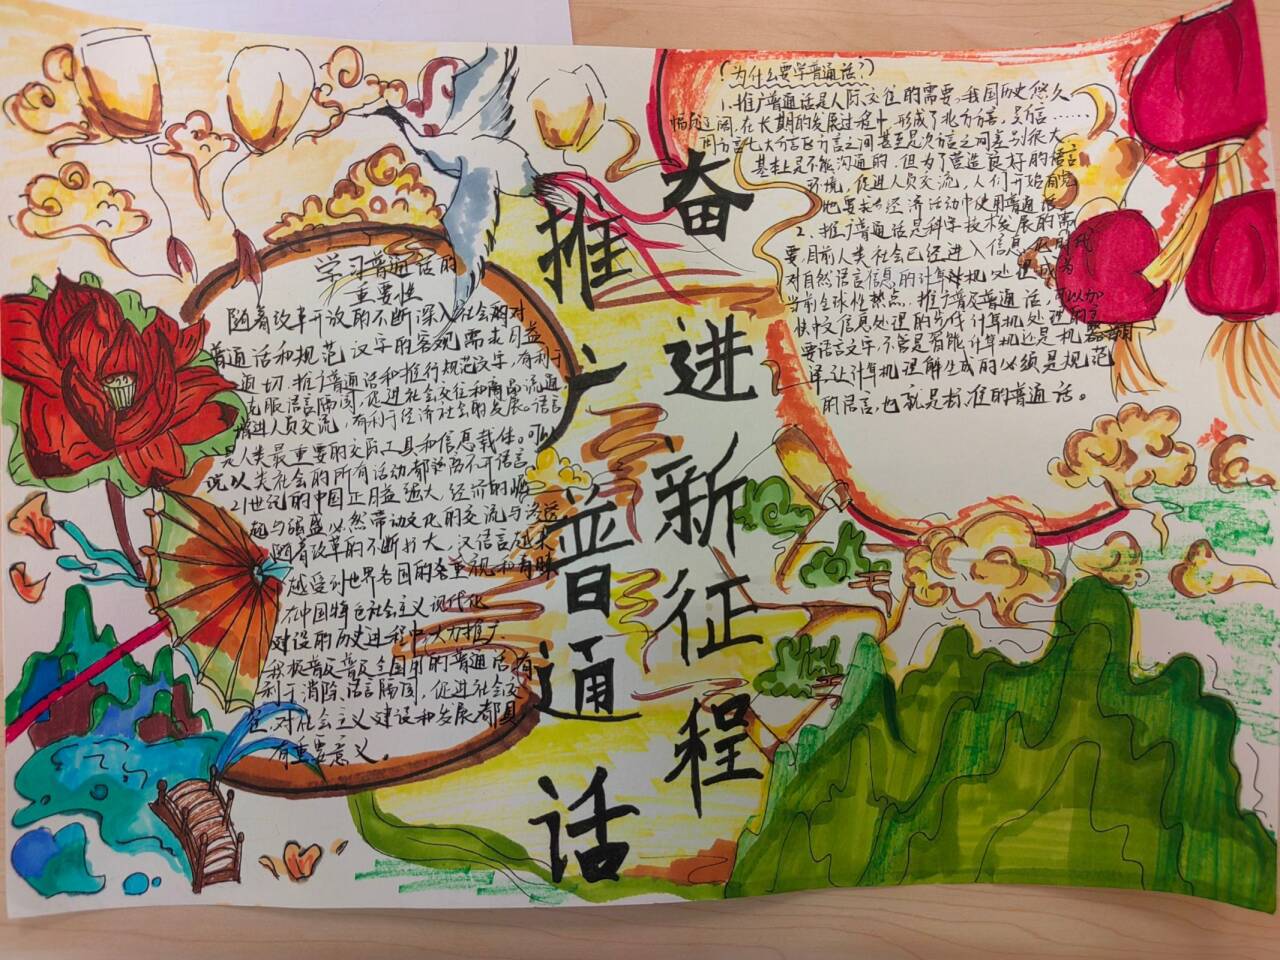 推广普通话
奋进新征程
学习普通话的
重要性
随着改革开放的不断深入社会的对
普通话和规范汉字的客观需求日益
迫切.推广普通话和推行规范汉字,有利于
克服语言隔阂,促进社会交往和商品流通,
增进人员交流,有利于经济社会的发展。语言
是人类最重要的交际工具和信息载体。可以
说人类社会的所有活动都离不开语言
21世纪的中国正日益强大,经济的
与强盛必然带动文化的交流与
随着改革的不断扩大,汉语言越来
越受到世界各国的重视和
在中国特色社会主义现代化
建设的历史进程中,大力推广
积极普及全国的普通话有
利于消除语言隔阂,促进社会交
往,对社会主义建设和发展都具
有重要意义。
(为什么要学普通话?)
1、推广普通话是人际交往的需要,我国历史悠久
幅员辽阔,在长期的发展过程中,形成了北方方言,吴方言……
同方言七大方言区方言之间甚至是次方言之间差别很大
基本上是不能沟通的,但为了营造良好的语言
环境,促进人员交流,人们开始
地要求在经济活动中使用普通话
2、推广普通话是科学技术发展的需
要,目前人类社会已经进入信息化时代
对自然语言信息的计算机处理成为
当前全球性热点,推广普及普通话,可以加
快中文信息处理的步伐计算机处理的
要语言文字,不管是智能计算机还是机器翻
译,让计算机理解生成的必须是规范
的语言,也就是标准的普通话。